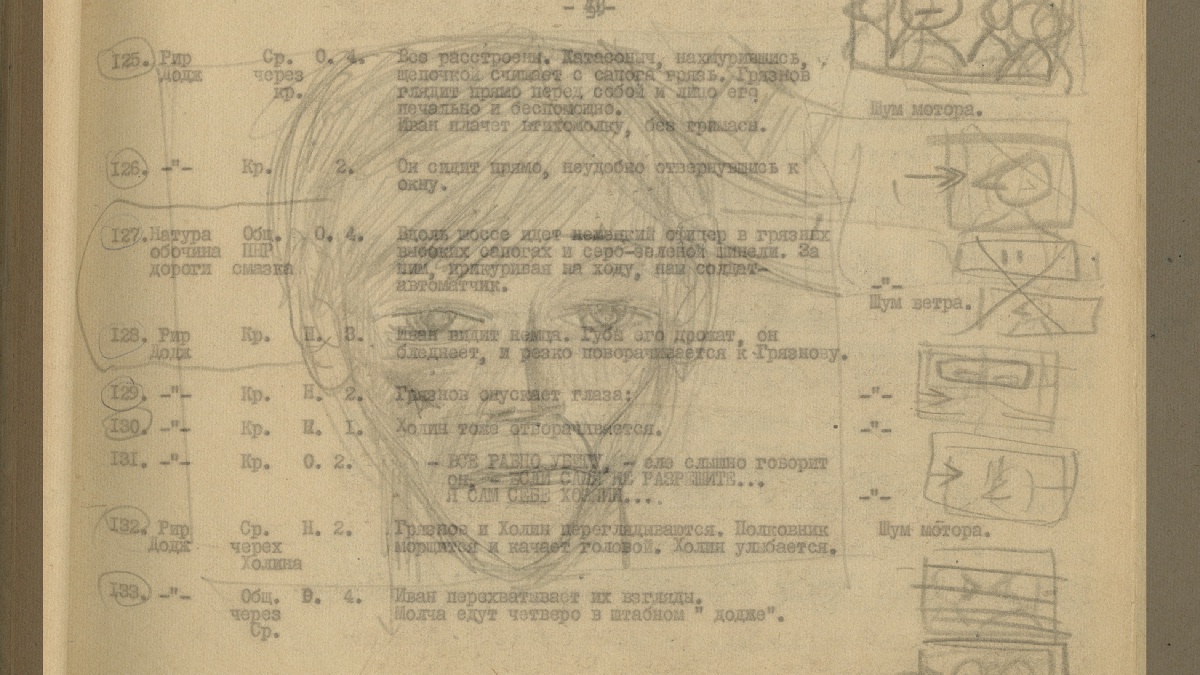 125. Рир Ср. О. 4. Все расстроены. Катасоныч, нахмурившись,
Додж через щепочкой счищает с сапога грязь. Грязнов
кр. глядит прямо перед собой и лицо его
печально и беспомощно. Шум мотора.
Иван плачет втихомолку, без гримасы.
126. -"- Кр. 2. Он сидит прямо, неудобно отвернувшись к
окну.
127. Натура Общ. О. 4. Вдоль шоссе идет немецкий офицер в грязных
обочина ПНР высоких сапогах и серо-зеленой шинели. За
дороги смазка ним, прикуривая на ходу, наш солдат-
автоматчик. -"-
Шум ветра.
128. Рир Кр. Н. 3. Иван видит немца. Губы его дрожат, он
Додж бледнеет, и резко поворачивается к Грязнову.
129. -"- Кр. Н. 2. Грязнов опускает глаза: -"-
130. -"- Кр. Н. 1. Холин тоже отворачивается. -"-
131. -"- Кр. О. 2. - ВСЕ РАВНО УБЕГУ, - еле слышно говорит
он, - ЕСЛИ САМИ НЕ РАЗРЕШИТЕ...
Я САМ СЕБЕ ХОЗЯИН.... -"-
132. Рир Ср. Н. 2. Грязнов и Холин переглядываются. Полковник Шум мотора.
Додж черех морщится и качает головой. Холин улыбается.
Холина
133. -"- Общ. О. 4. Иван перехватывает их взгляды.
через Молча едут четверо в штабном " додже".
Ср.